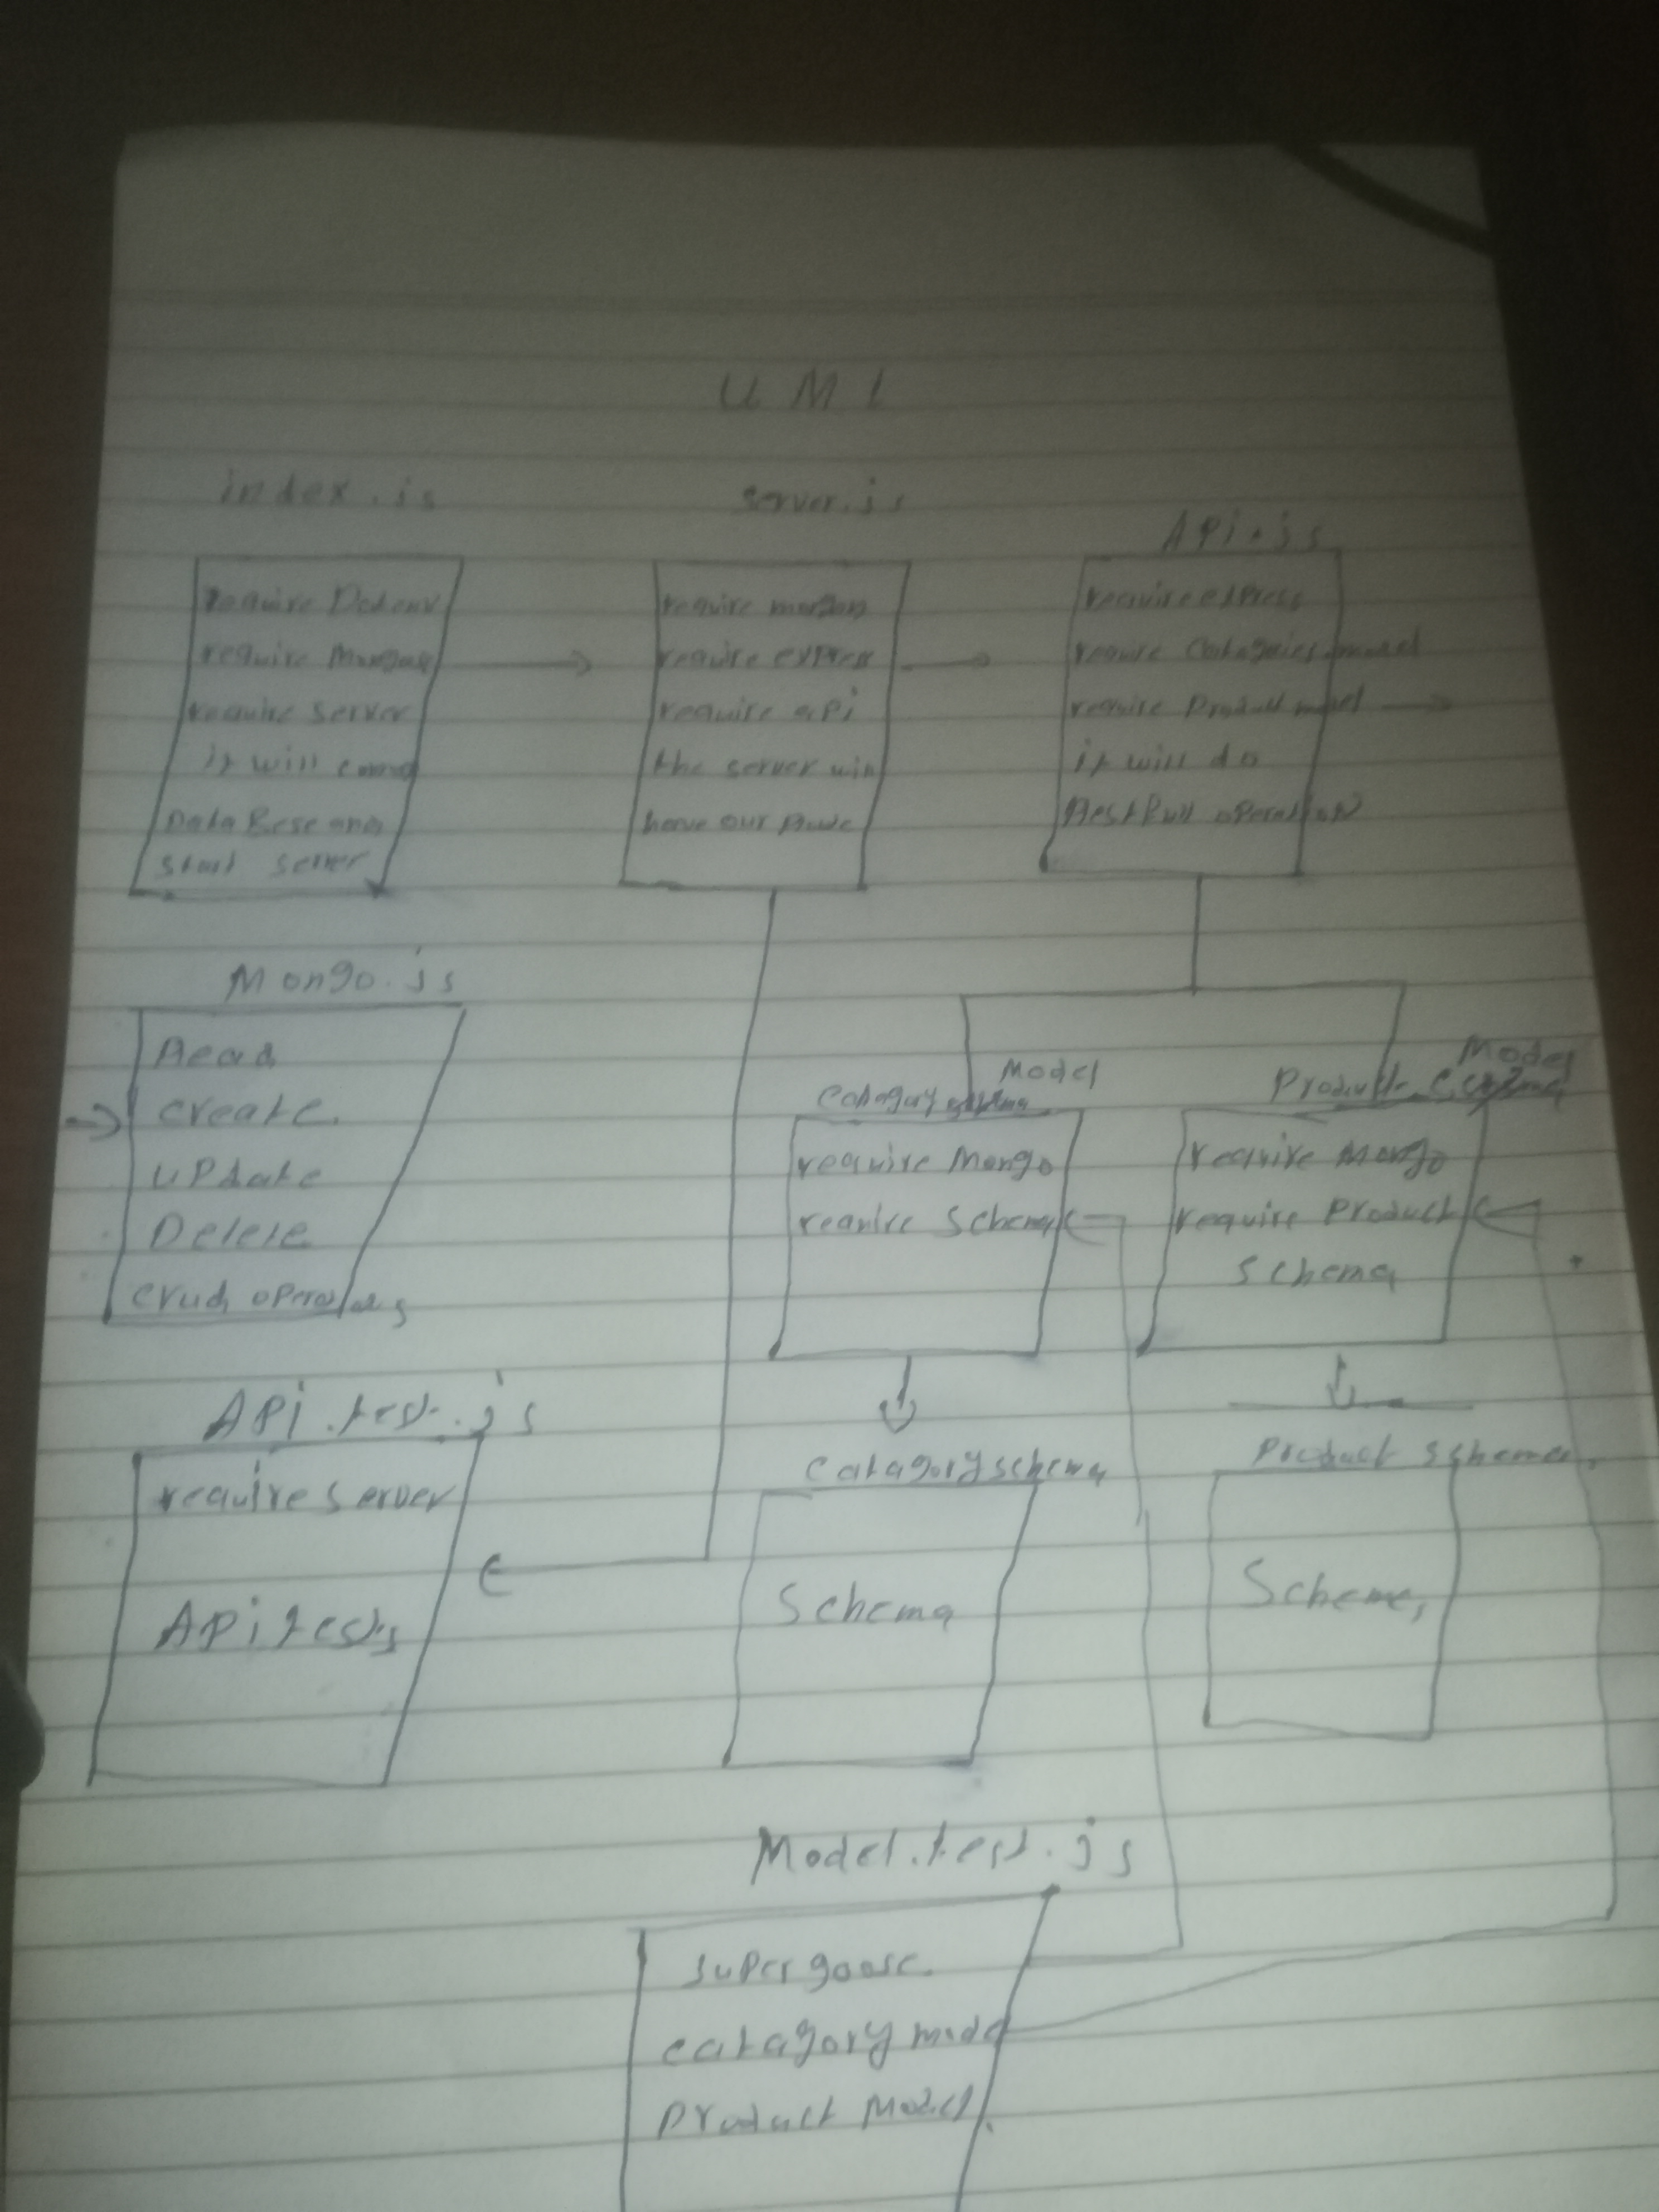 UML
index.js
require Dotenv
require Mongoose
require server
it will
DataBase and
start server
server.js
require morgan
require express
require api
the server will
have our
APi.js
require express
require Categories.model
require Product model
it will do
RestFull operation
Mongo.js
Read
create
UPdate
Delete
crud operations
Model
Catagory
require Mongo
require Schema
Model
Product
require Mongo
require Product
Schema
APi.test.js
require server
APi tests
Catagory schema
Schema
Product schema
Schema
Model.test.js
super goose
catagory model
Product Model